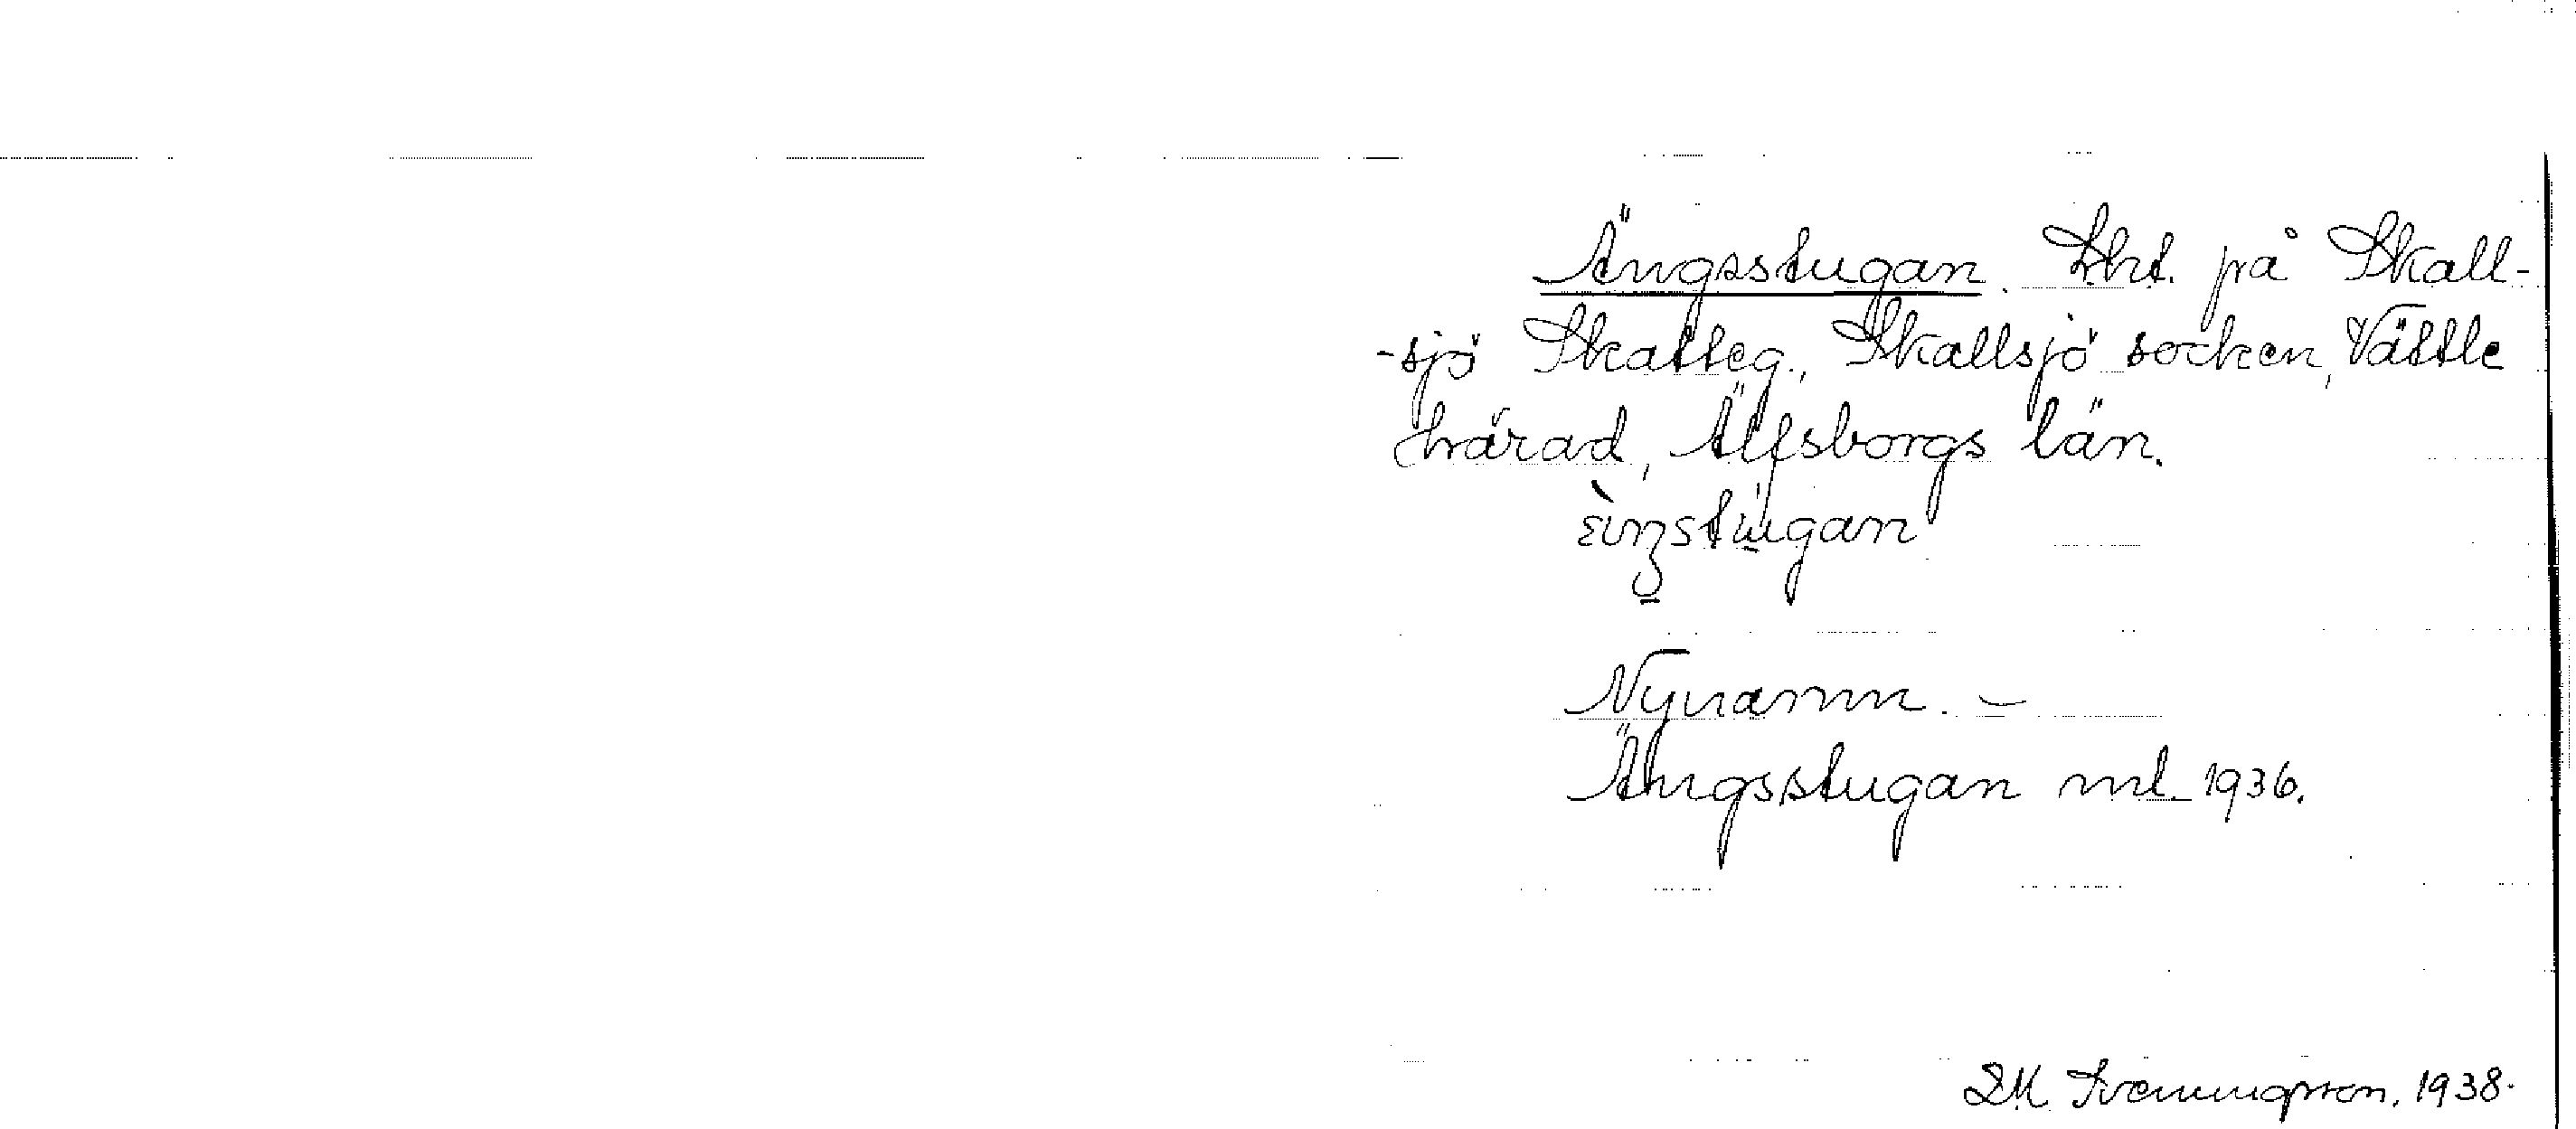 Ängsstugan. Lht. på Skall-
-sjö Skatteg., Skallsjö socken, Vättle
härad, Älfsborgs län.
Nynamn. –
Ängsstugan ml. 1936.
Svenningsson. 1938.